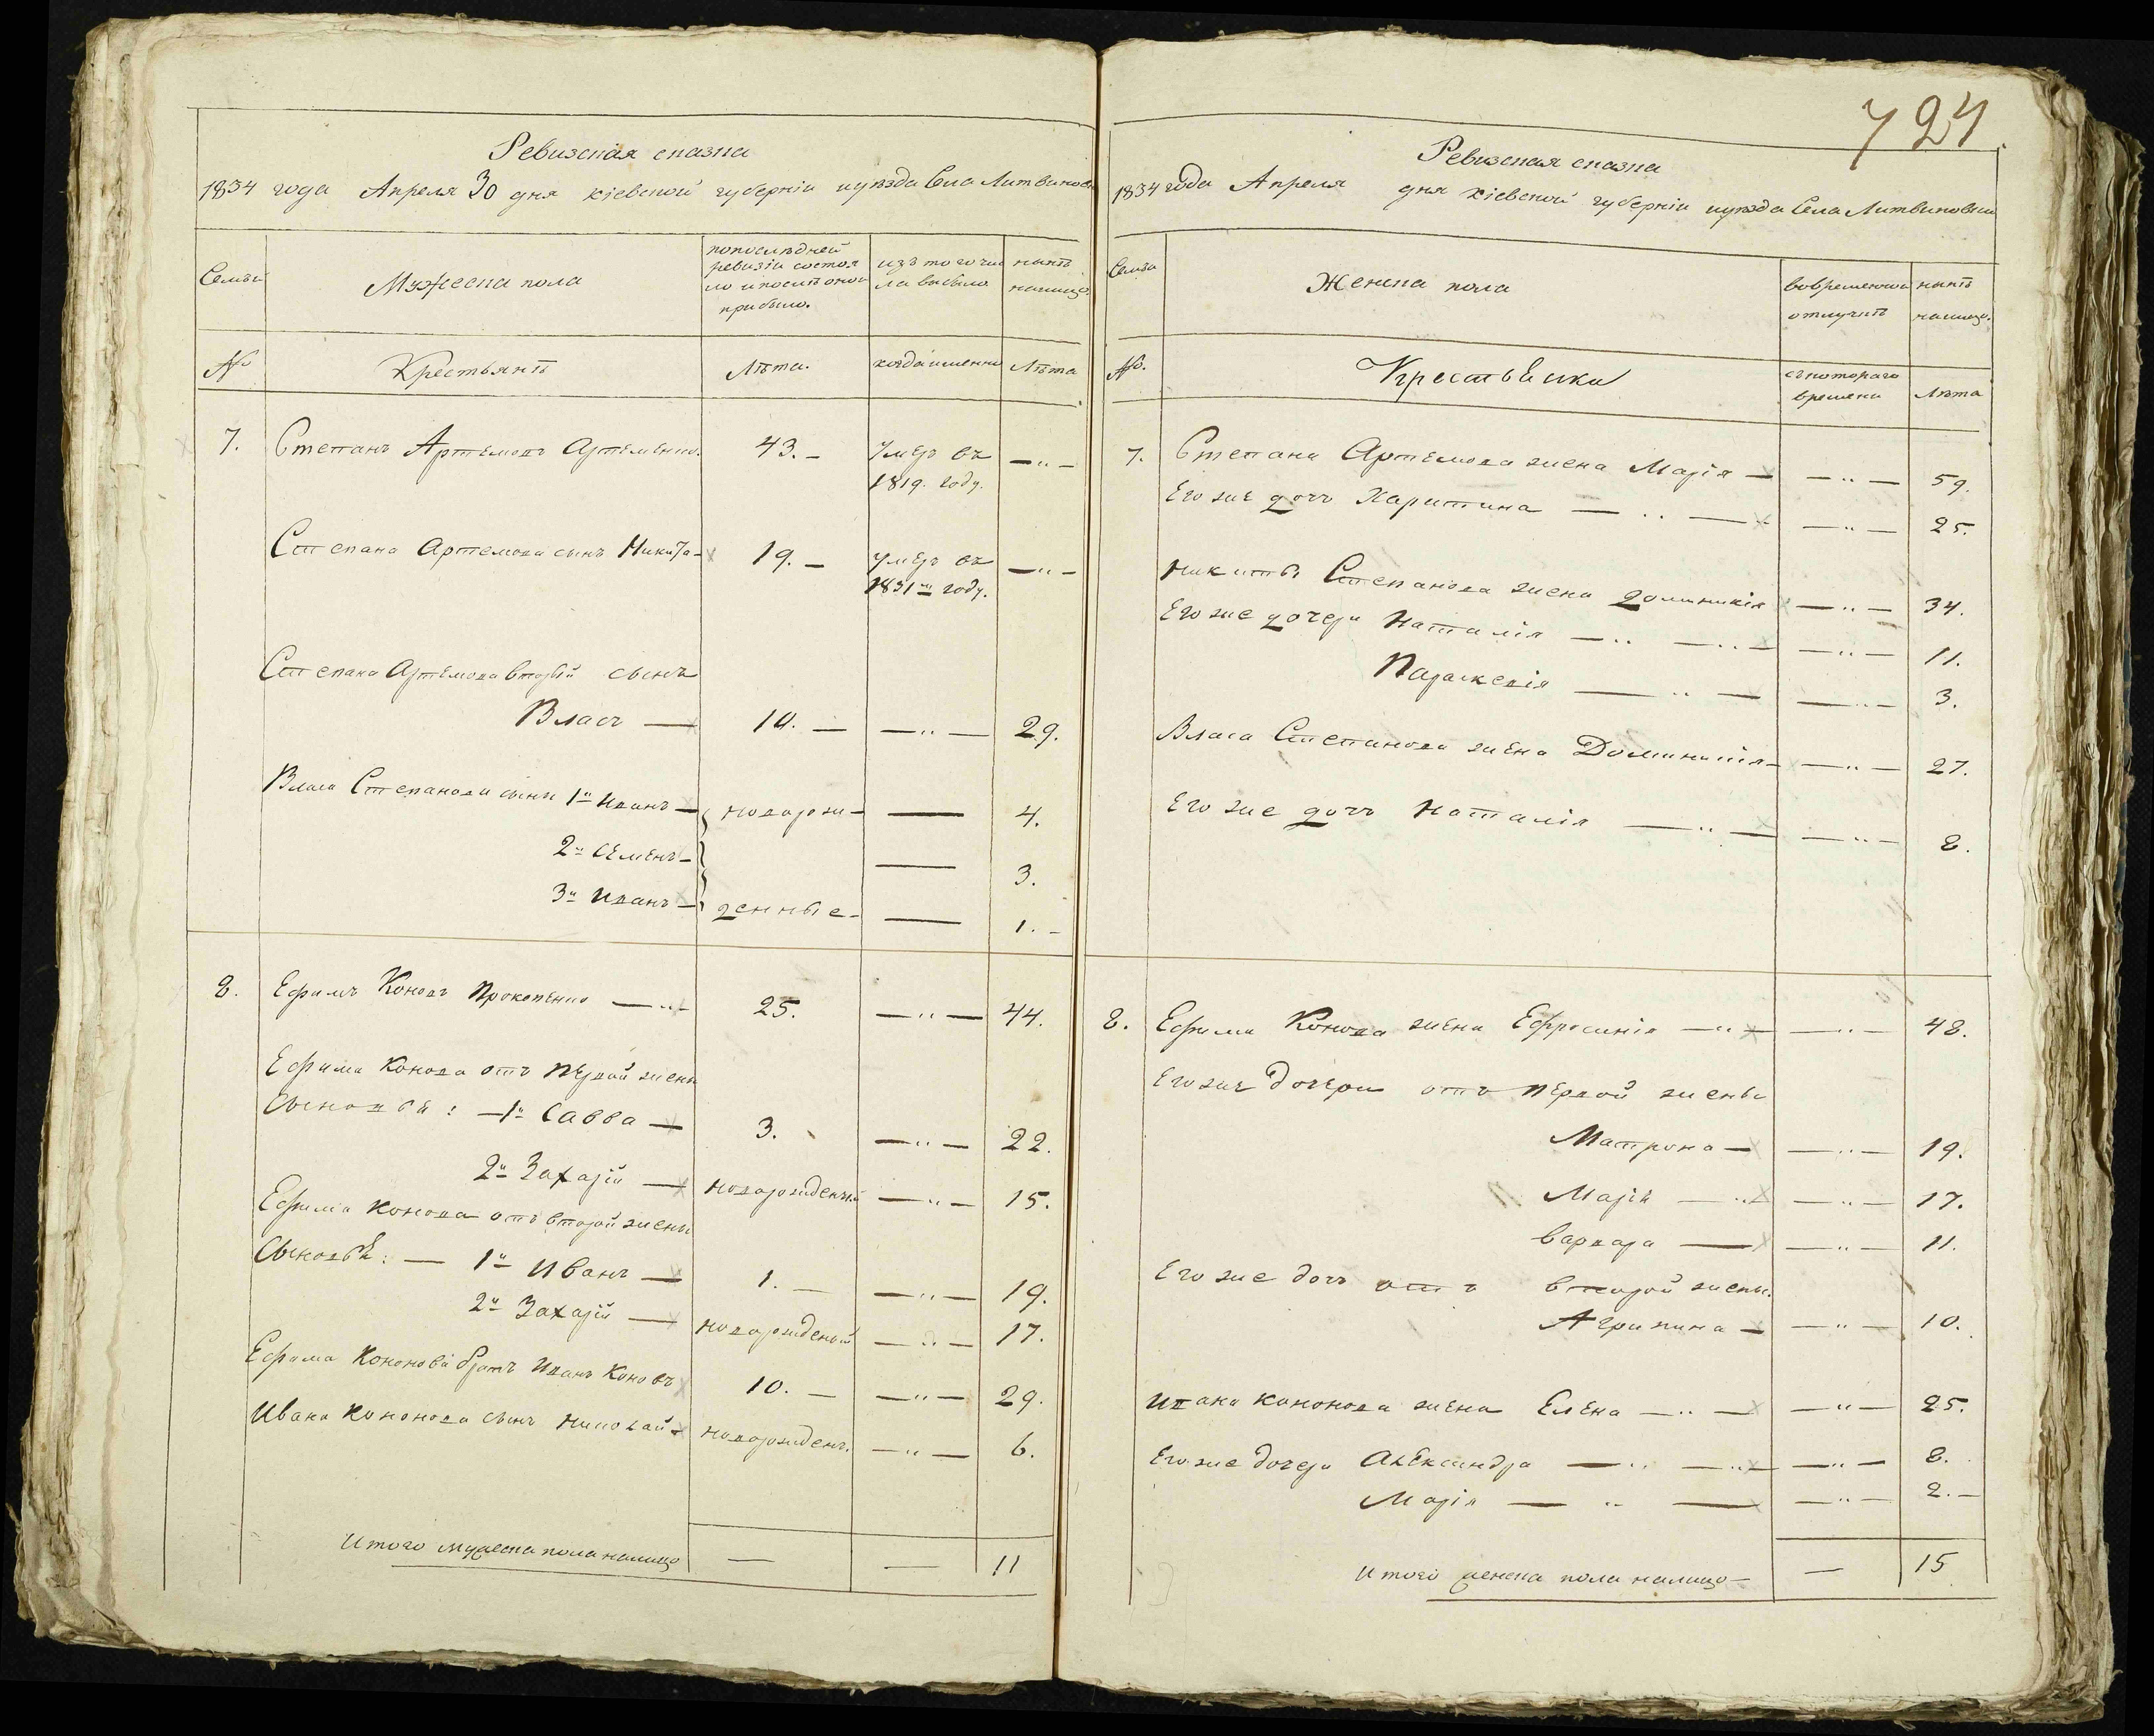 Ревизская сказка
1834 года Апреля 30 дня кіевской губерніи и уезда Села Литвиновки
Семьи
Мужеска пола
по последней ревизіи состояло и после оной прибыло.
изъ того числа выбыло
ныне налицо.
№
Крестьяне
Лѣта.
когда именно
Лѣта
7. Степанъ Артемовъ Артеменко. 43. — Умеръ въ 1819. году. — " —
Степана Артемова сынъ Никита — 19. — умеръ въ 1831м году. — " —
Степана Артемова вторый сынъ
Власъ — 10. — — " — 29.
Власа Степанова сыны 1й Иванъ — новорож — — 4.
2й Семенъ — — 3.
3й Иванъ — денные — — 1. —
8. Ефимъ Коновъ Прокопенко — " — 25. — " — 44.
Ефима Конова отъ первой жены
Сыновья: — 1й Савва — 3. — " — 22.
2й Захарій — новорожденый — " — 15.
Ефима Конова отъ второй жены
Сыновья: — 1й Иванъ — 1. — — " — 19.
2й Захарій — новорожденый — " — 17.
Ефима Кононова братъ Иванъ Коновъ 10. — — " — 29.
Ивана Кононова сынъ Николай — новорожденъ. — " — 6.
Итого мужеска пола налицо — — 11
724
Ревизская сказка
1834 года Апреля дня кіевской губерніи и уезда Села Литвиновки
Семьи
Женска пола
во временной отлучке
ныне налицо.
№.
Крестьянки
съ котораго времени
Лѣта
7. Степана Артемова жена Марія — — " — 59.
Его же дочь Харитина — " — — " — 25.
Никиты Степанова жена Доминикія — " — 34.
Его же дочери Наталія — " — " — — " — 11.
Параскевія — " — — " — 3.
Власа Степанова жена Доминикія — — " — 27.
Его же дочь Наталія — " — — " — 8.
8. Ефима Конова жена Ефросинія — " — — " — 48.
Его же дочери отъ первой жены
Матрона — — " — 19.
Марія — " — — " — 17.
Варвара — — " — 11.
Его же дочь отъ второй жены.
Агрипина — — " — 10.
Ивана Кононова жена Елена — " — — " — 25.
Его же дочери Александра — " — " — — " — 8.
Марія — " — — " — 2. —
Итого женска пола налицо — — 15